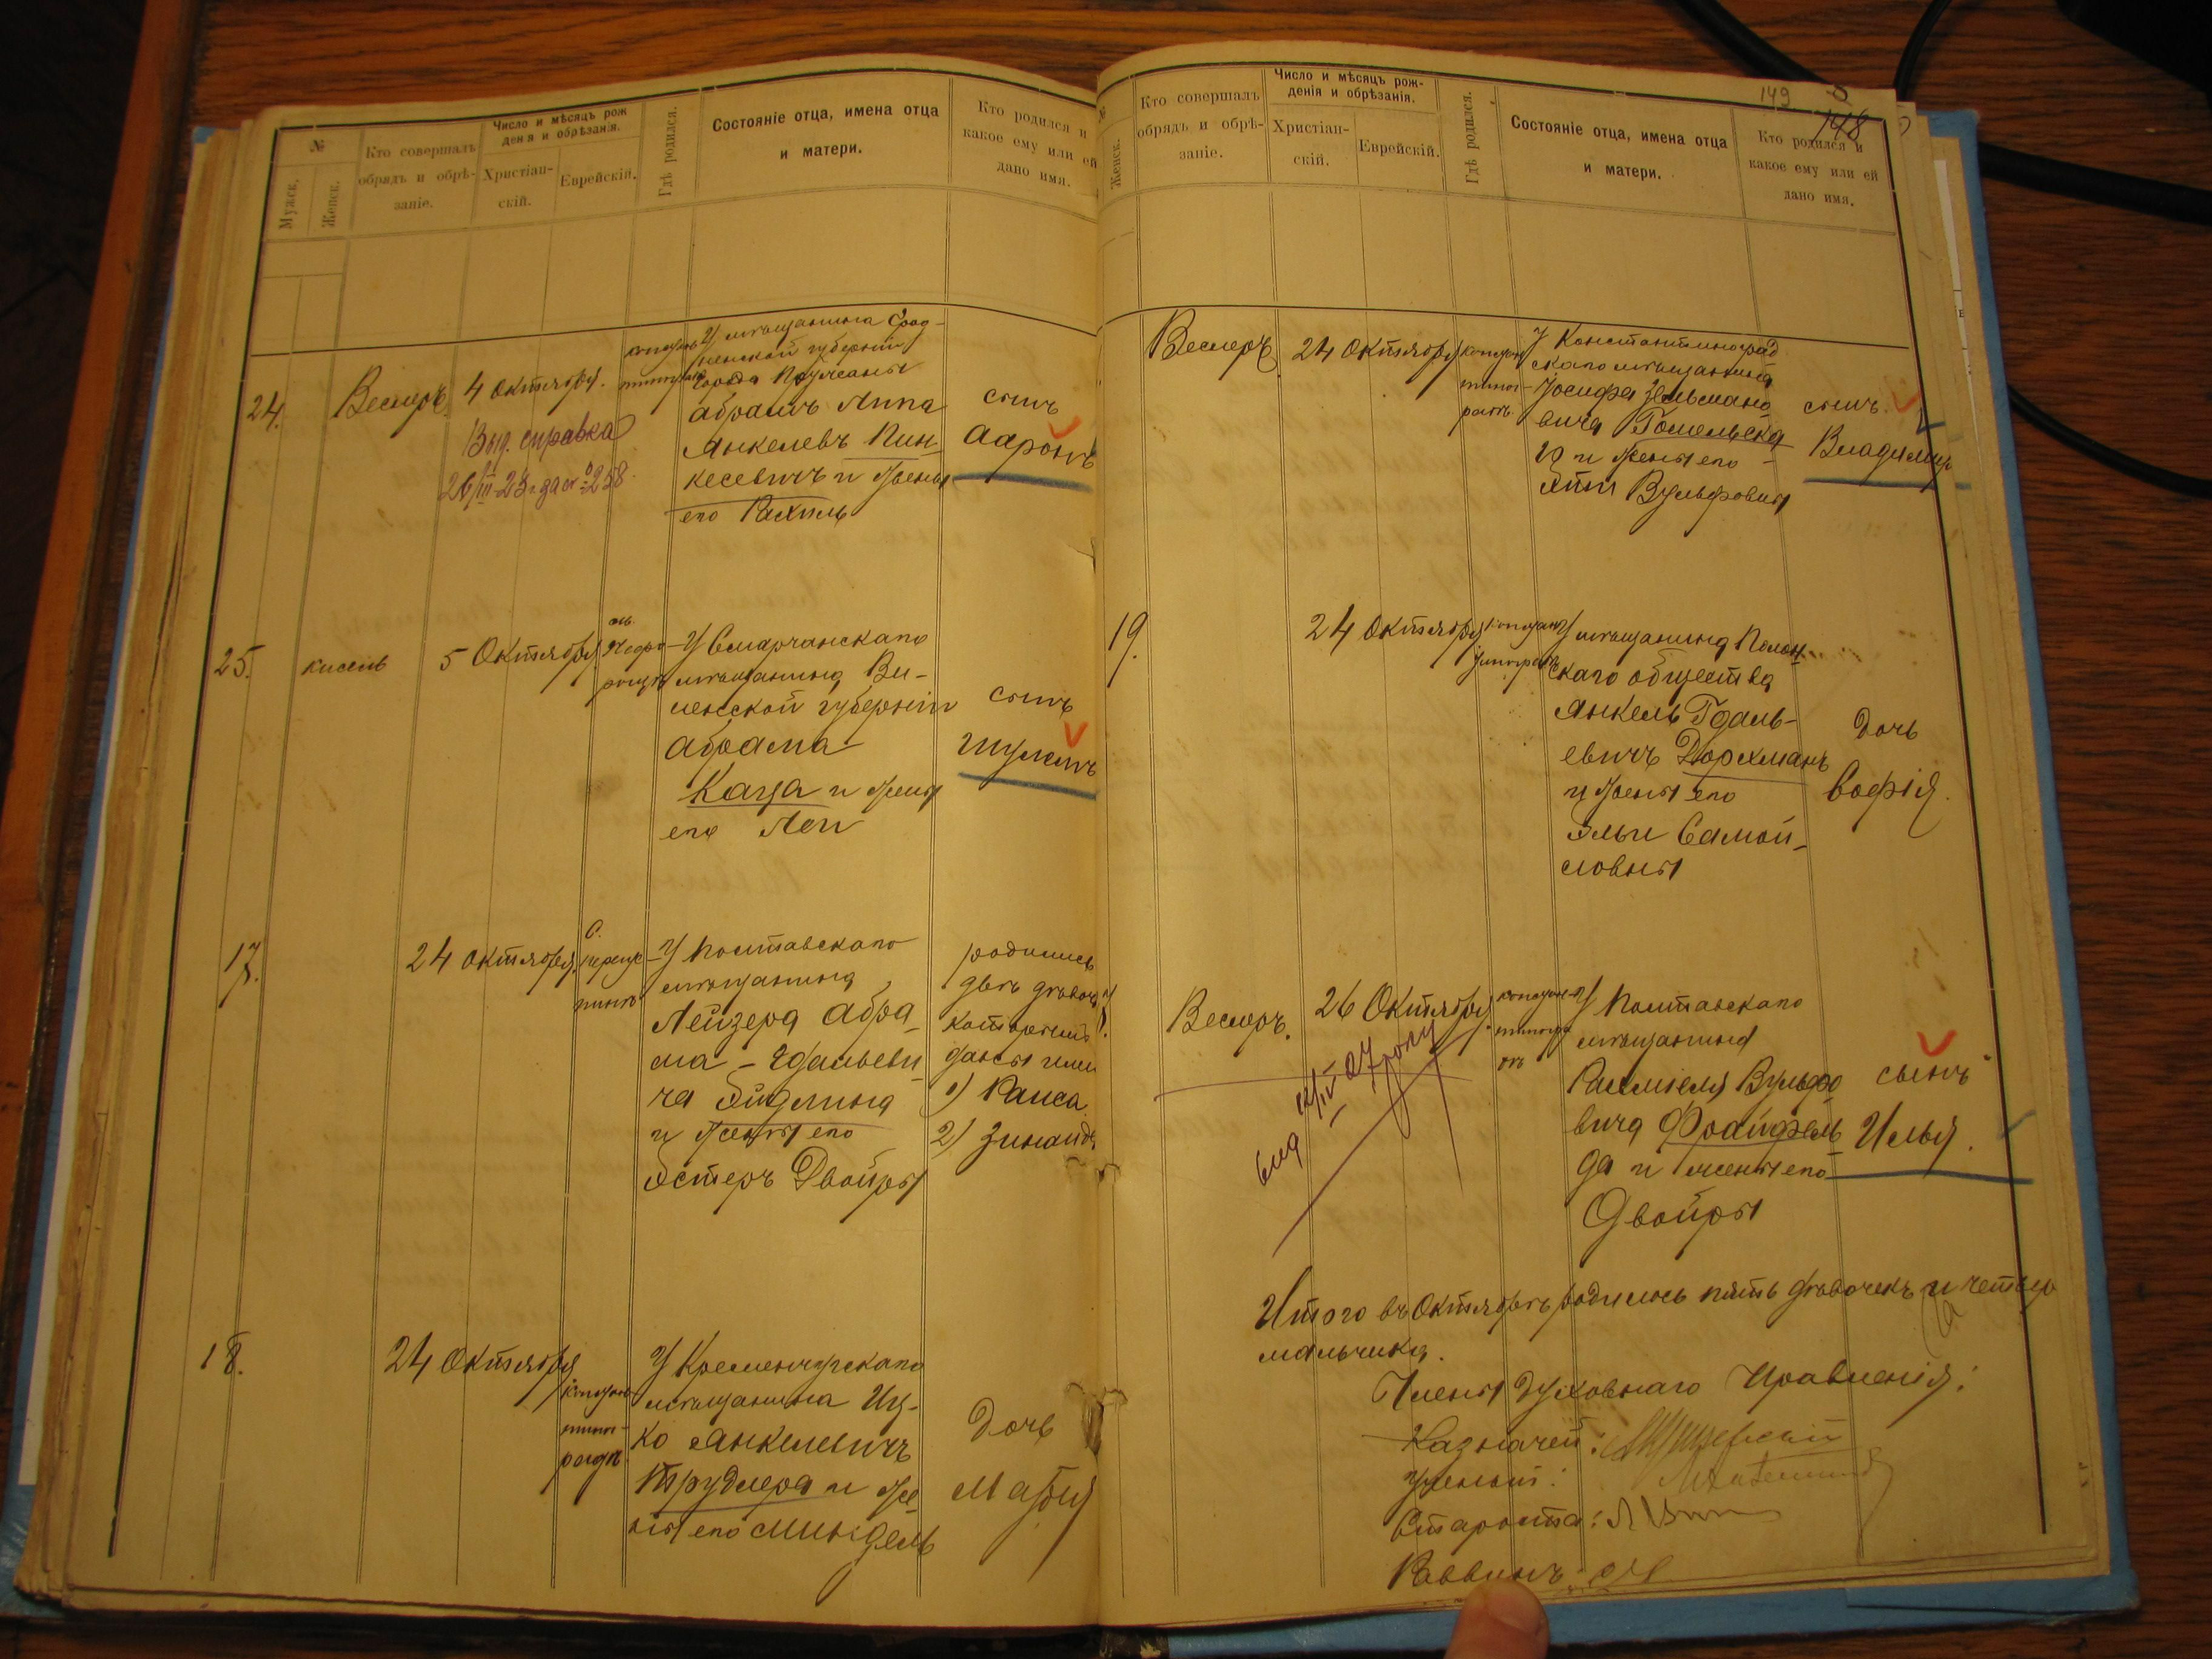 №
Мужск.
Женск.
Кто совершалъ
обрядъ и обрѣ-
заніе.
Число и мѣсяцъ рож
денія и обрѣзанія.
Христіан-
скій.
Еврейскій.
Гдѣ родился.
Состояніе отца, имена отца
и матери.
Кто родился и
какое ему или ей
дано имя.
24.
Веслеръ
4 Октября.
Выд. справка
У мѣщанина Грод-
ненской губерніи
города Пружаны
Абрамъ Липа
Янкелевъ Пин-
кесевичъ и жены
его Рахиль
сынъ
Ааронъ
25.
кисель
5 Октября
У Сморчанскаго
мѣщанина Ви-
ленской губерніи
Абрама
Каца и жены
его Леи
сынъ
Шулимъ
17.
24 Октября.
У Полтавскаго
мѣщанина
Лейзера Абра-
ма-Гдальеви
ча Эйдлина
и жены его
Эстеръ Двойры
родились
двѣ дѣвочки
которымъ
даны имя
1) Раиса
2) Зинаида
18.
24 Октября
У Кременчугскаго
мѣщанина Иц-
ко Янкелевичъ
Трудлера и же
ны его Миндель
Дочь
Мария
Женск.
Кто совершалъ
обрядъ и обрѣ-
заніе.
Число и мѣсяцъ рож-
денія и обрѣзанія.
Христіан-
скій.
Еврейскій.
Гдѣ родился.
Состояніе отца, имена отца
и матери.
149
148
Кто родился и
какое ему или ей
дано имя.
Веслеръ
24 Октября
У Константиноград
скаго мѣщанина
Іосифа Зельмано
вича Гомельска
го и жены его
Вульфовны
сынъ
Владимир
19.
24 Октября
У мѣщанина Полон
скаго общества
Янкель Гдаль-
евичъ Дорхманъ
и жены его
Эльи Самой-
ловны
Дочь
Софія.
Веслеръ.
26 Октября
У Полтавскаго
мѣщанина
Рахміеля Вульфо
вича Фрайфель
да и жены его
Двойры
сынъ
Илья.
Итого въ Октябрѣ родилось пять дѣвочекъ и четыре
мальчика.
Члены Духовнаго Правленія:
Казначей:
Ученый:
Староста:
Раввинъ